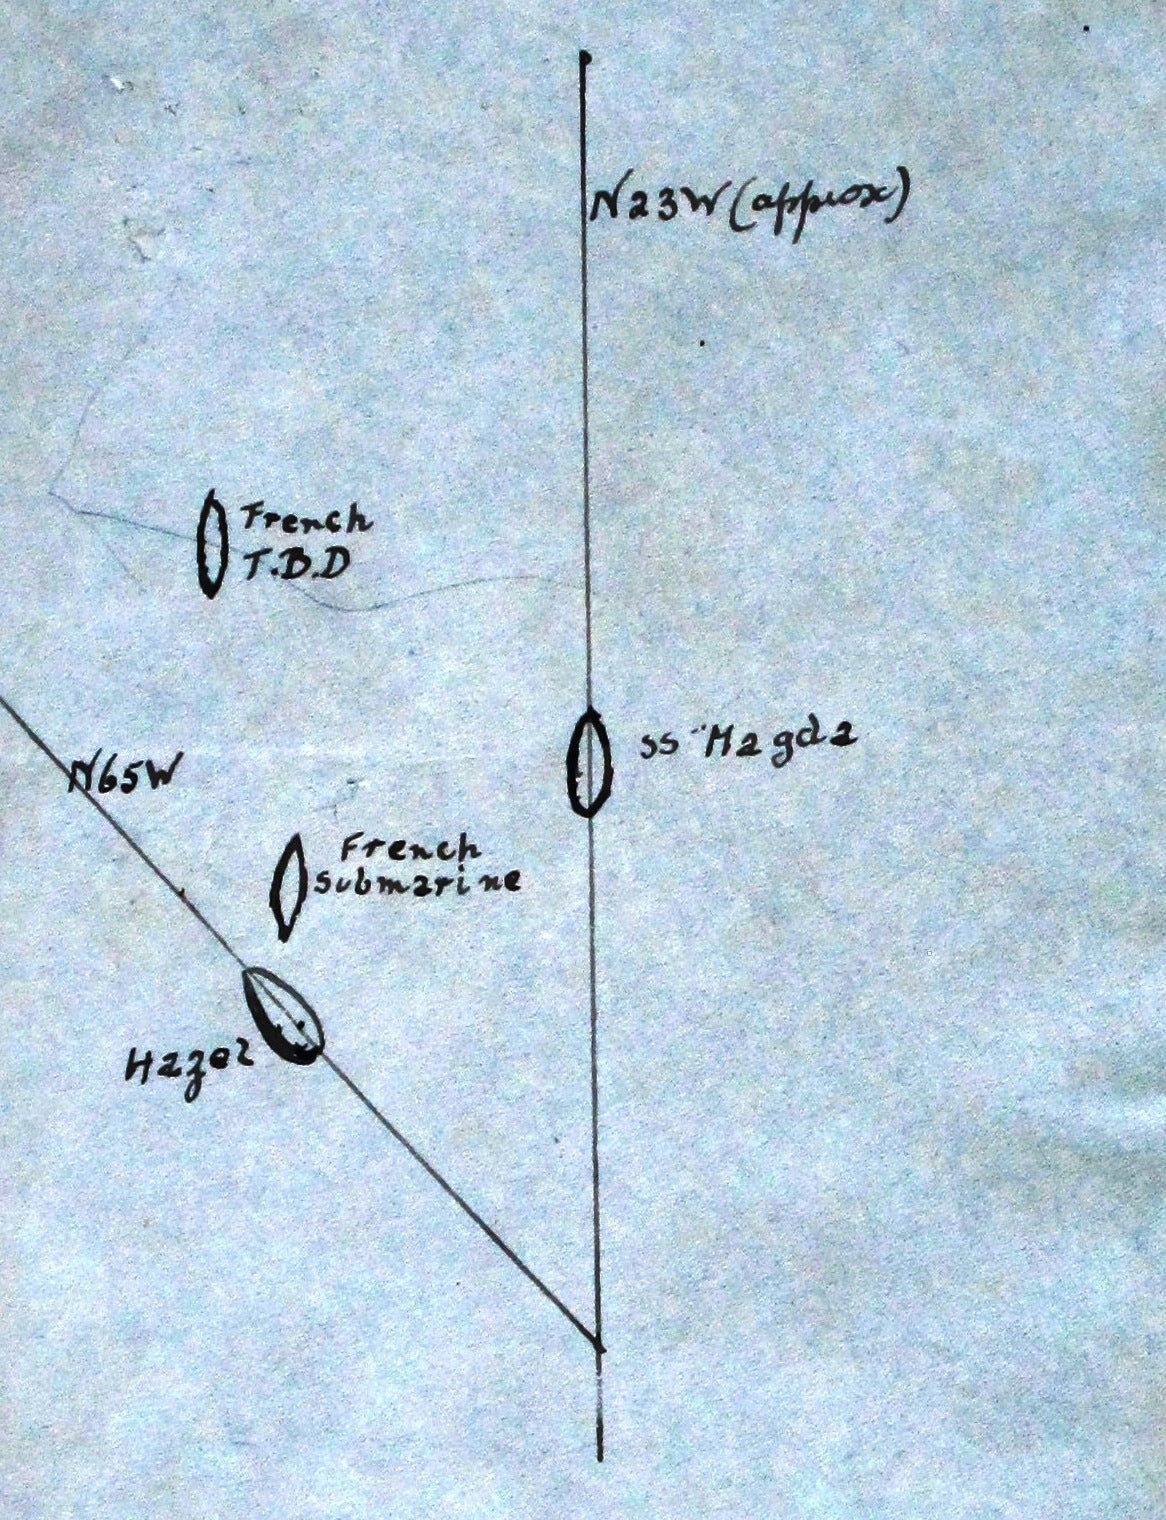 N23W (approx)
French
T.B.D
ss "Magda
N65W
French
submarine
Hazel